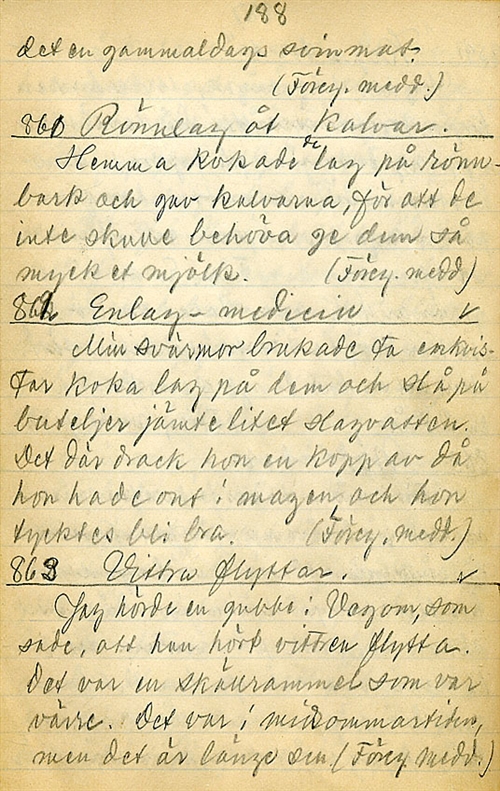 188
det en gammaldags svinmat.
(Föreg. medd.)
861 Rönnlag åt kalvar.
Hemma kokade de lag på rönn-
bark och gav kalvarna, för att de
inte skulle behöva ge dem så
mycket mjölk. (Föreg. medd.)
862 Enlag-medicin √
Min svärmor brukade ta enkvis-
tar koka lag på dem och slå på
buteljer jämte litet slagvatten.
Det där drack hon en kopp av då
hon hade ont i magen och hon
tycktes bli bra. (Föreg. medd.)
863 Vittra flyttar. √
Jag hörde en gubbe i Vagom, som
sade, att han hört vittren flytta.
Det var en skällrammel som var
värre. Det var i midsommartiden,
men det är länge sen. (Föreg. medd.)